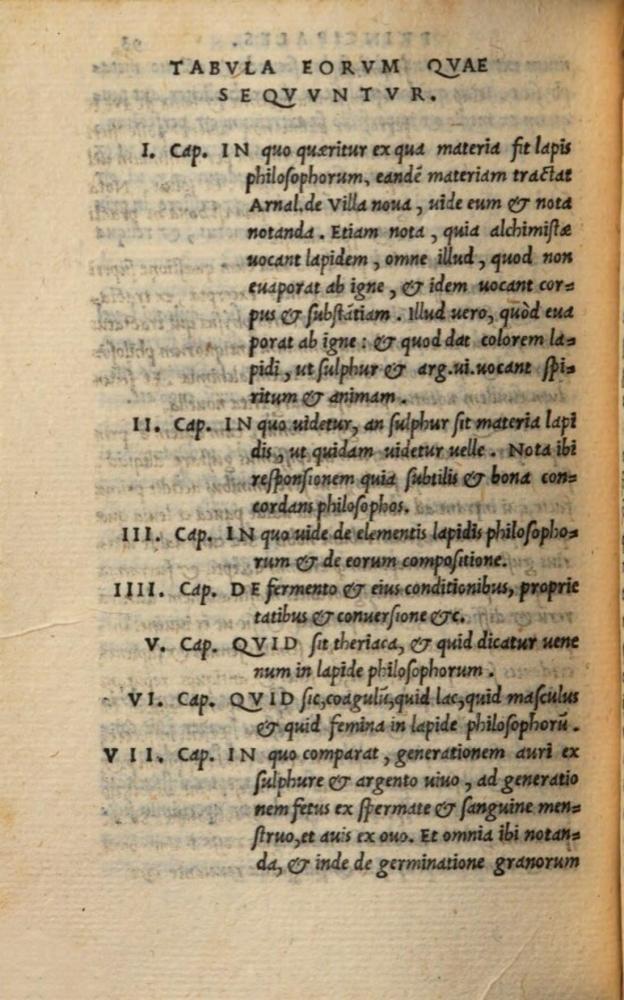 TABVLA EORVM QVAE
SEQVVNTVR.
I. Cap. IN quo quæritur ex qua materia fit lapis
philoſophorum, eandẽ materiam tractat
Arnal.de Villa noua, uide eum & nota
notanda. Etiam nota, quia alchimiſtæ
uocant lapidem, omne illud, quod non
euaporat ab igne, & idem uocant cor=
pus & ſubſtãtiam. Illud uero, quòd eua
porat ab igne: & quod dat colorem la=
pidi, ut ſulphur & arg.ui.uocant ſpi=
ritum & animam.
II. Cap. IN quo uidetur, an ſulphur ſit materia lapi
dis, ut quidam uidetur uelle. Nota ibi
reſponſionem quia ſubtilis & bona con=
cordans philoſophos.
III. Cap. IN quo uide de elementis lapidis philoſopho=
rum & de eorum compoſitione.
IIII. Cap. DE fermento & eius conditionibus, proprie
tatibus & conuerſione &c.
V. Cap. QVID ſit theriaca, & quid dicatur uene
num in lapide philoſophorum.
VI. Cap. QVID ſic, coagulũ, quid lac, quid maſculus
& quid femina in lapide philoſophorũ.
VII. Cap. IN quo comparat, generationem auri ex
ſulphure & argento uiuo, ad generatio
nem fetus ex ſpermate & ſanguine men=
ſtruo, et auis ex ouo. Et omnia ibi notan=
da, & inde de germinatione granorum